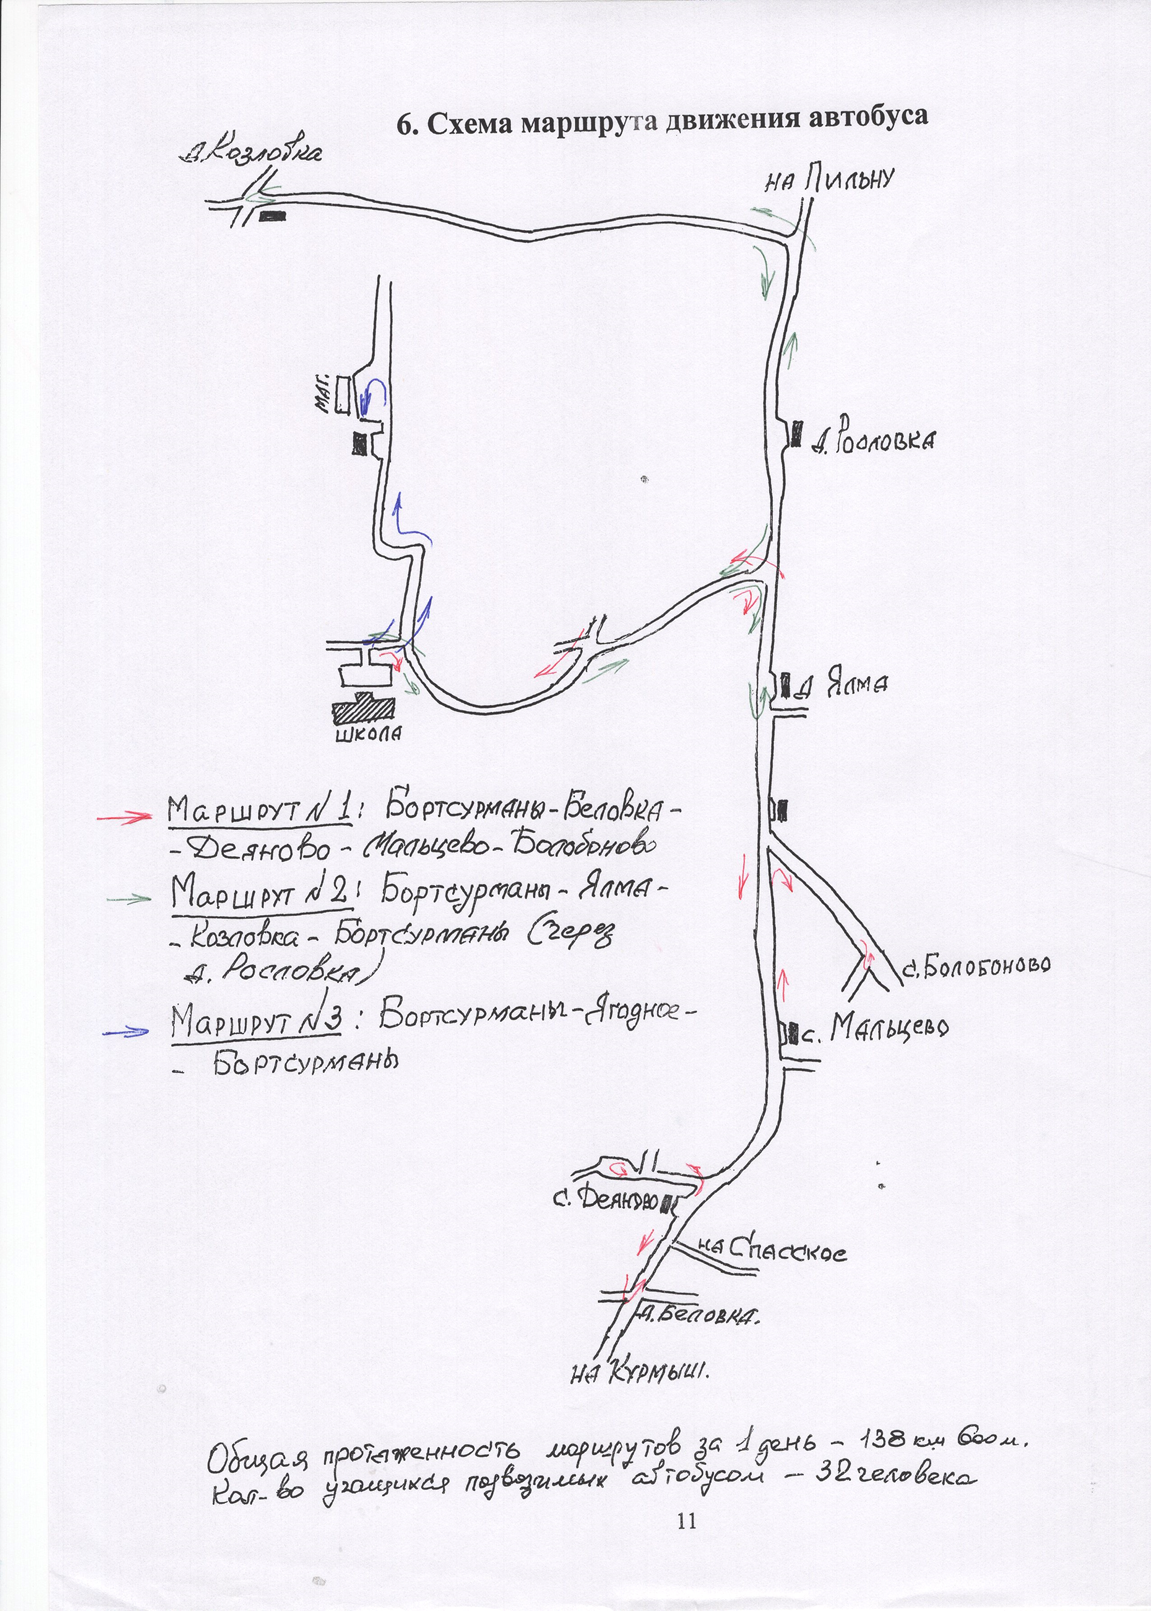 6. Схема маршрута движения автобуса
д. Козловка
на Пильну
маг.
д. Рословка
д Ялма
школа
Маршрут №1: Бортсурманы-Беловка-
-Деяново-Мальцево-Болобоново
Маршрут №2: Бортсурманы-Ялма-
-Козловка-Бортсурманы (через
д. Рословка)
с. Болобоново
Маршрут №3: Бортсурманы-Ягодное-
- Бортсурманы
с. Мальцево
с. Деяново
на Спасское
д. Беловка.
на Курмыш.
Общая протяженность маршрутов за 1 день - 138 км 600 м.
Кол-во учащихся подвозимых автобусом - 32 человека
11